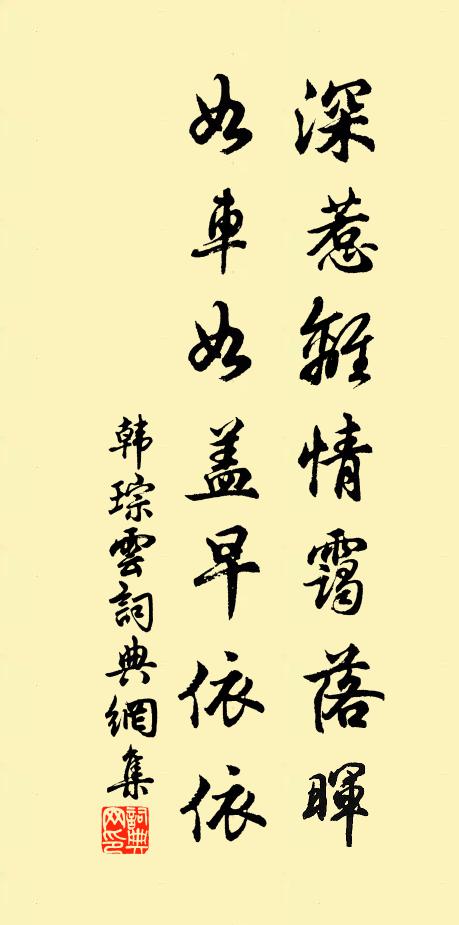 深惹離情靄落暉
如車如蓋早依依
韩琮雲詞典網集
詞典網印